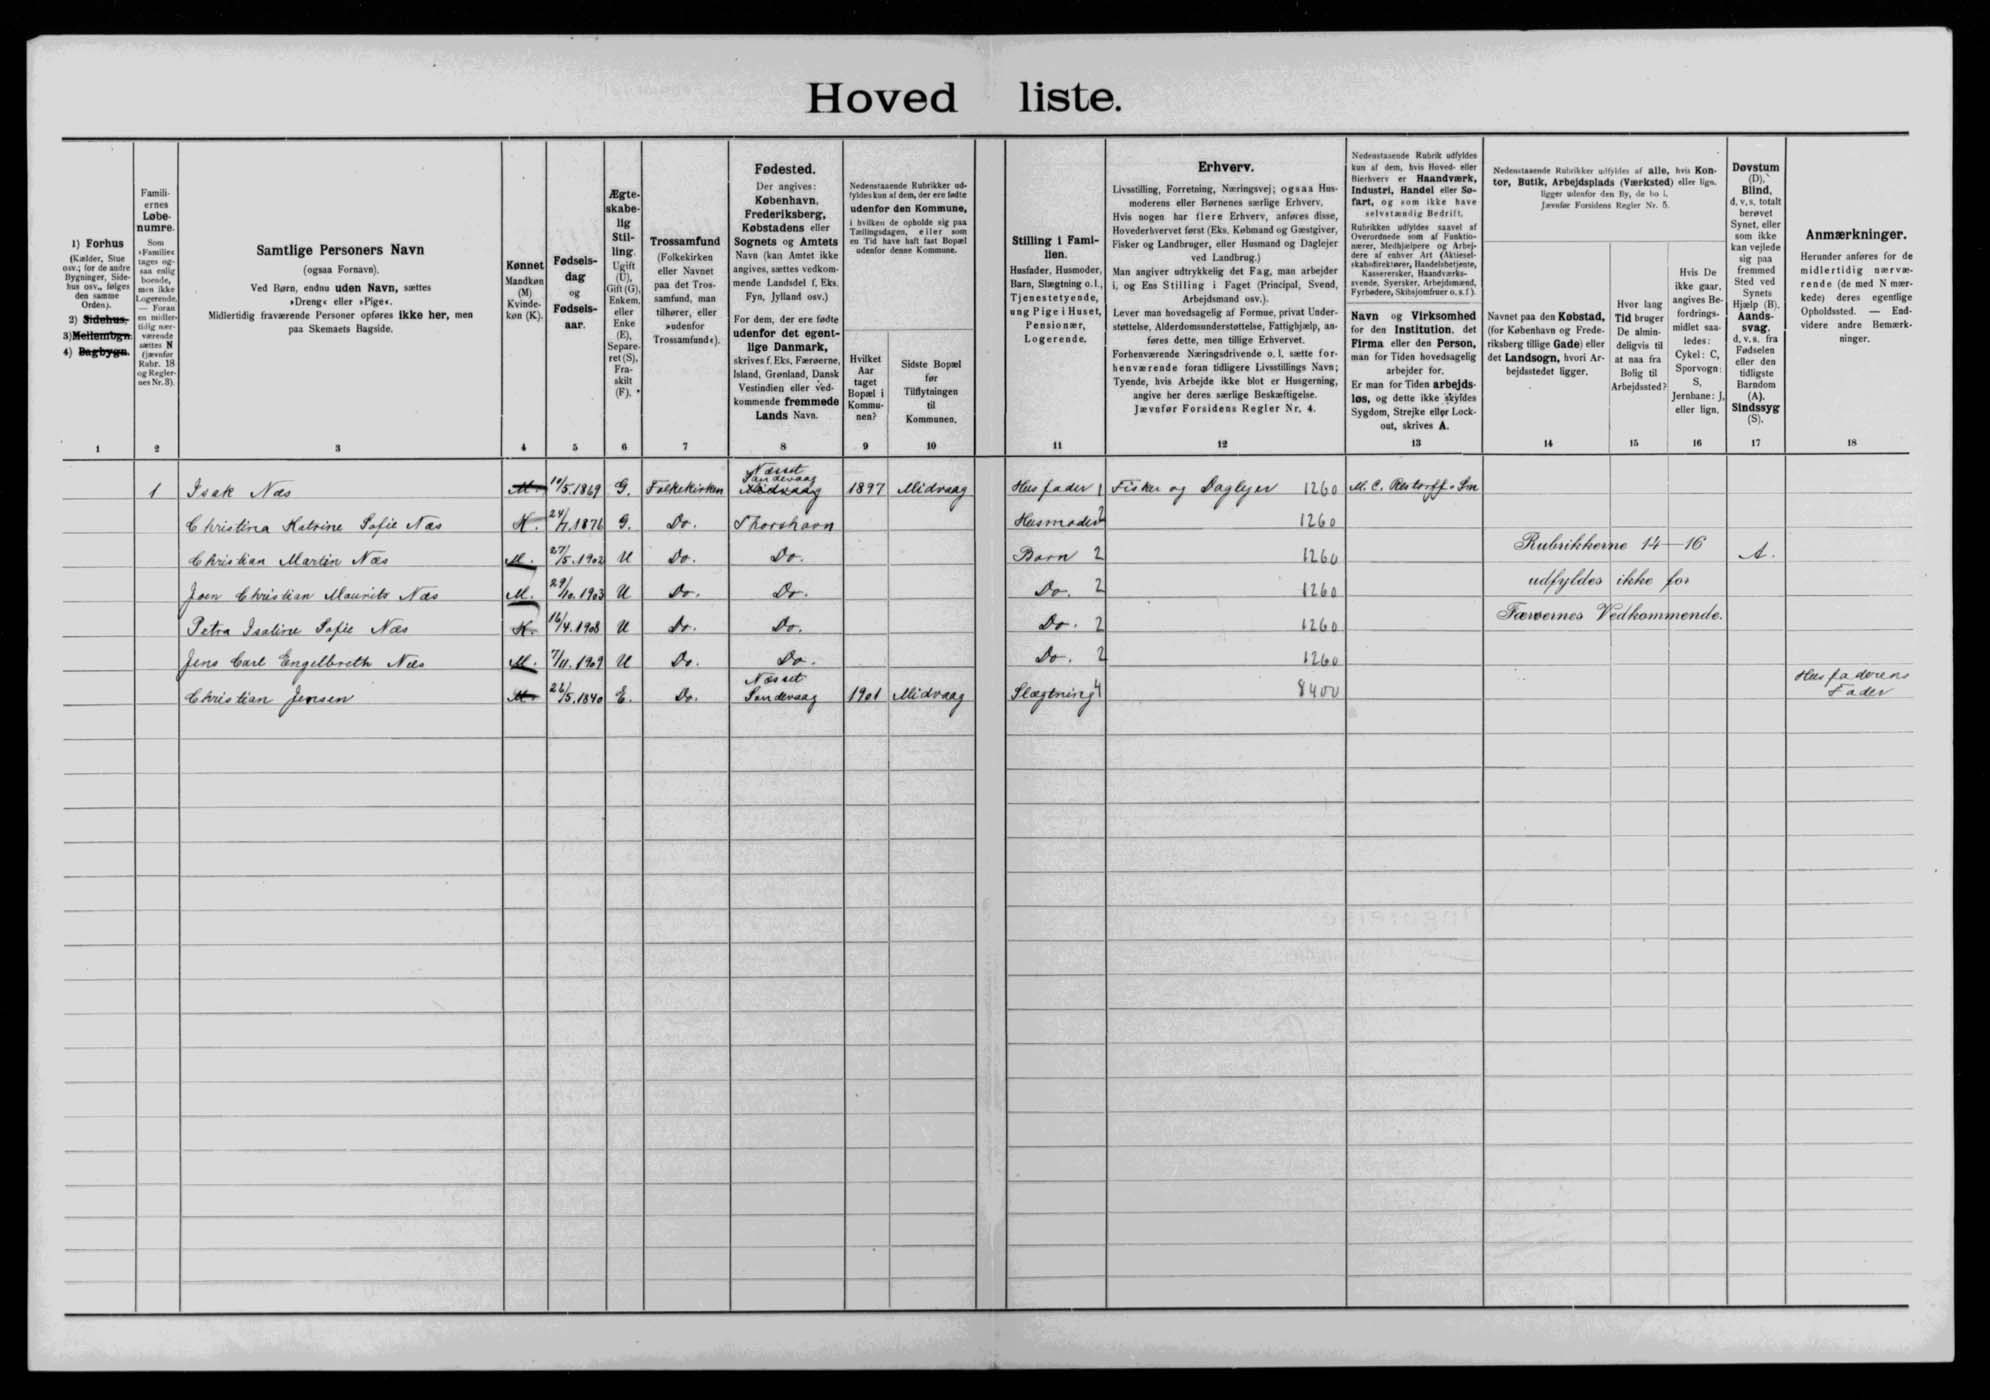 Hoved liste.
1) Forhus
(Kælder, Stue
osv.; for de andre
Bygninger, Side-
hus osv., følges
den samme
Orden).
2) Sidehus.
3) Mellembgn.
4) Bagbygn.
1
Famili-
ernes
Løbe-
numre.
Som
»Familie«
tages og-
saa enlig
boende,
men ikke
Logerende.
— Foran
en midler-
tidig nær-
værende
sættes N
(jævnfør
Rubr. 18
og Regler-
nes Nr. 3).
2
Samtlige Personers Navn
(ogsaa Fornavn).
Ved Børn, endnu uden Navn, sættes
»Dreng« eller »Pige«.
Midlertidig fraværende Personer opføres ikke her, men
paa Skemaets Bagside.
3
Kønnet
Mandkøn
(M)
Kvinde-
køn (K).
4
Fødsels-
dag
og
Fødsels-
aar.
5
Ægte-
skabe-
lig
Stil-
ling.
Ugift
(U),
Gift (G),
Enkem.
eller
Enke
(E),
Separe-
ret (S),
Fra-
skilt
(F).
6
Trossamfund
(Folkekirken
eller Navnet
paa det Tros-
samfund, man
tilhører, eller
»udenfor
Trossamfund«).
7
Fødested.
Der angives:
København,
Frederiksberg,
Købstadens eller
Sognets og Amtets
Navn (kan Amtet ikke
angives, sættes vedkom-
mende Landsdel f. Eks.
Fyn, Jylland osv.)
For dem, der ere fødte
udenfor det egent-
lige Danmark,
skrives f. Eks. Færøerne,
Island, Grønland, Dansk
Vestindien eller ved-
kommende fremmede
Lands Navn.
8
Nedenstaaende Rubrikker ud-
fyldes kun af dem, der ere fødte
udenfor den Kommune,
i hvilken de opholde sig paa
Tællingsdagen, eller som
en Tid have haft fast Bopæl
udenfor denne Kommune.
Hvilket
Aar
taget
Bopæl i
Kommu-
nen?
9
Sidste Bopæl
før
Tilflytningen
til
Kommunen.
10
Stilling i Fami-
lien.
Husfader, Husmoder,
Barn, Slægtning o. l.,
Tjenestetyende,
ung Pige i Huset,
Pensionær,
Logerende.
11
Erhverv.
Livsstilling, Forretning, Næringsvej; ogsaa Hus-
moderens eller Børnenes særlige Erhverv.
Hvis nogen har flere Erhverv, anføres disse,
Hovederhvervet først (Eks. Købmand og Gæstgiver,
Fisker og Landbruger, eller Husmand og Daglejer
ved Landbrug.)
Man angiver udtrykkelig det Fag, man arbejder
i, og Ens Stilling i Faget (Principal, Svend,
Arbejdsmand osv.).
Lever man hovedsagelig af Formue, privat Under-
støttelse, Alderdomsunderstøttelse, Fattighjælp, an-
føres dette, men tillige Erhvervet.
Forhenværende Næringsdrivende o. l. sætte for-
henværende foran tidligere Livsstillings Navn;
Tyende, hvis Arbejde ikke blot er Husgerning,
angive her deres særlige Beskæftigelse.
Jævnfør Forsidens Regler Nr. 4.
12
Nedenstaaende Rubrik udfyldes
kun af dem, hvis Hoved- eller
Bierhverv er Haandværk,
Industri, Handel eller Sø-
fart, og som ikke have
selvstændig Bedrift.
Rubrikken udfyldes saavel af
Overordnede som af Funktio-
nærer, Medhjælpere og Arbej-
dere af enhver Art (Aktiesel-
skabsdirektører, Handelsbetjente,
Kassererske, Haandværks-
svende, Syersker, Arbejdsmænd,
Fyrbødere, Skibsjomfruer o. s. f.).
Navn og Virksomhed
for den Institution, det
Firma eller den Person,
man for Tiden hovedsagelig
arbejder for.
Er man for Tiden arbejds-
løs, og dette ikke skyldes
Sygdom, Strejke eller Lock-
out, skrives A.
13
Nedenstaaende Rubrikker udfyldes af alle, hvis Kon-
tor, Butik, Arbejdsplads (Værksted) eller lign.
ligger udenfor den By, de bo i.
Jævnfør Forsidens Regler Nr. 5.
Navnet paa den Købstad,
(for København og Frede-
riksberg tillige Gade) eller
det Landsogn, hvori Ar-
bejdsstedet ligger.
14
Hvor lang
Tid bruger
De almin-
deligvis til
at naa fra
Bolig til
Arbejdssted?
15
Hvis De
ikke gaar,
angives Be-
fordrings-
midlet saa-
ledes:
Cykel: C,
Sporvogn:
S,
Jernbane: J,
eller lign.
16
Døvstum
(D),
Blind,
d. v. s. totalt
berøvet
Synet, eller
som ikke
kan vejlede
sig paa
fremmed
Sted ved
Synets
Hjælp (B).
Aands-
svag,
d. v. s. fra
Fødselen
eller den
tidligste
Barndom
(A).
Sindssyg
(S).
17
Anmærkninger.
Herunder anføres for de
midlertidig nærvæ-
rende (de med N mær-
kede) deres egentlige
Opholdssted. — End-
videre andre Bemærk-
ninger.
18
1 Isak Næs M. 10/5.1869 G. Folkekirken Næsset Sandevaag Midvaag 1897 Midvaag Husfader 1 Fisker og Daglejer 1260 M. C. Restorff & Søn
Christina Katrine Sofie Næs K. 24/7.1876 G. Do. Thorshavn Husmoder 2 1260
Christian Martin Næs M. 27/5.1902 U Do. Do. Barn 2 1260 Rubrikkerne 14—16 A.
Joen Christian Maurits Næs M. 29/10.1903 U Do. Do. Do. 2 1260 udfyldes ikke for
Petra Isaline Sofie Næs K. 16/4.1908 U Do. Do. Do. 2 1260 Færøernes Vedkommende.
Jens Carl Engelbreth Næs M. 7/11.1909 U Do. Do. Do. 2 1260
Christian Jensen M. 26/5.1840 E. Do. Næsset Sandevaag 1901 Midvaag Slægtning 4 8400 Husfaderens Fader